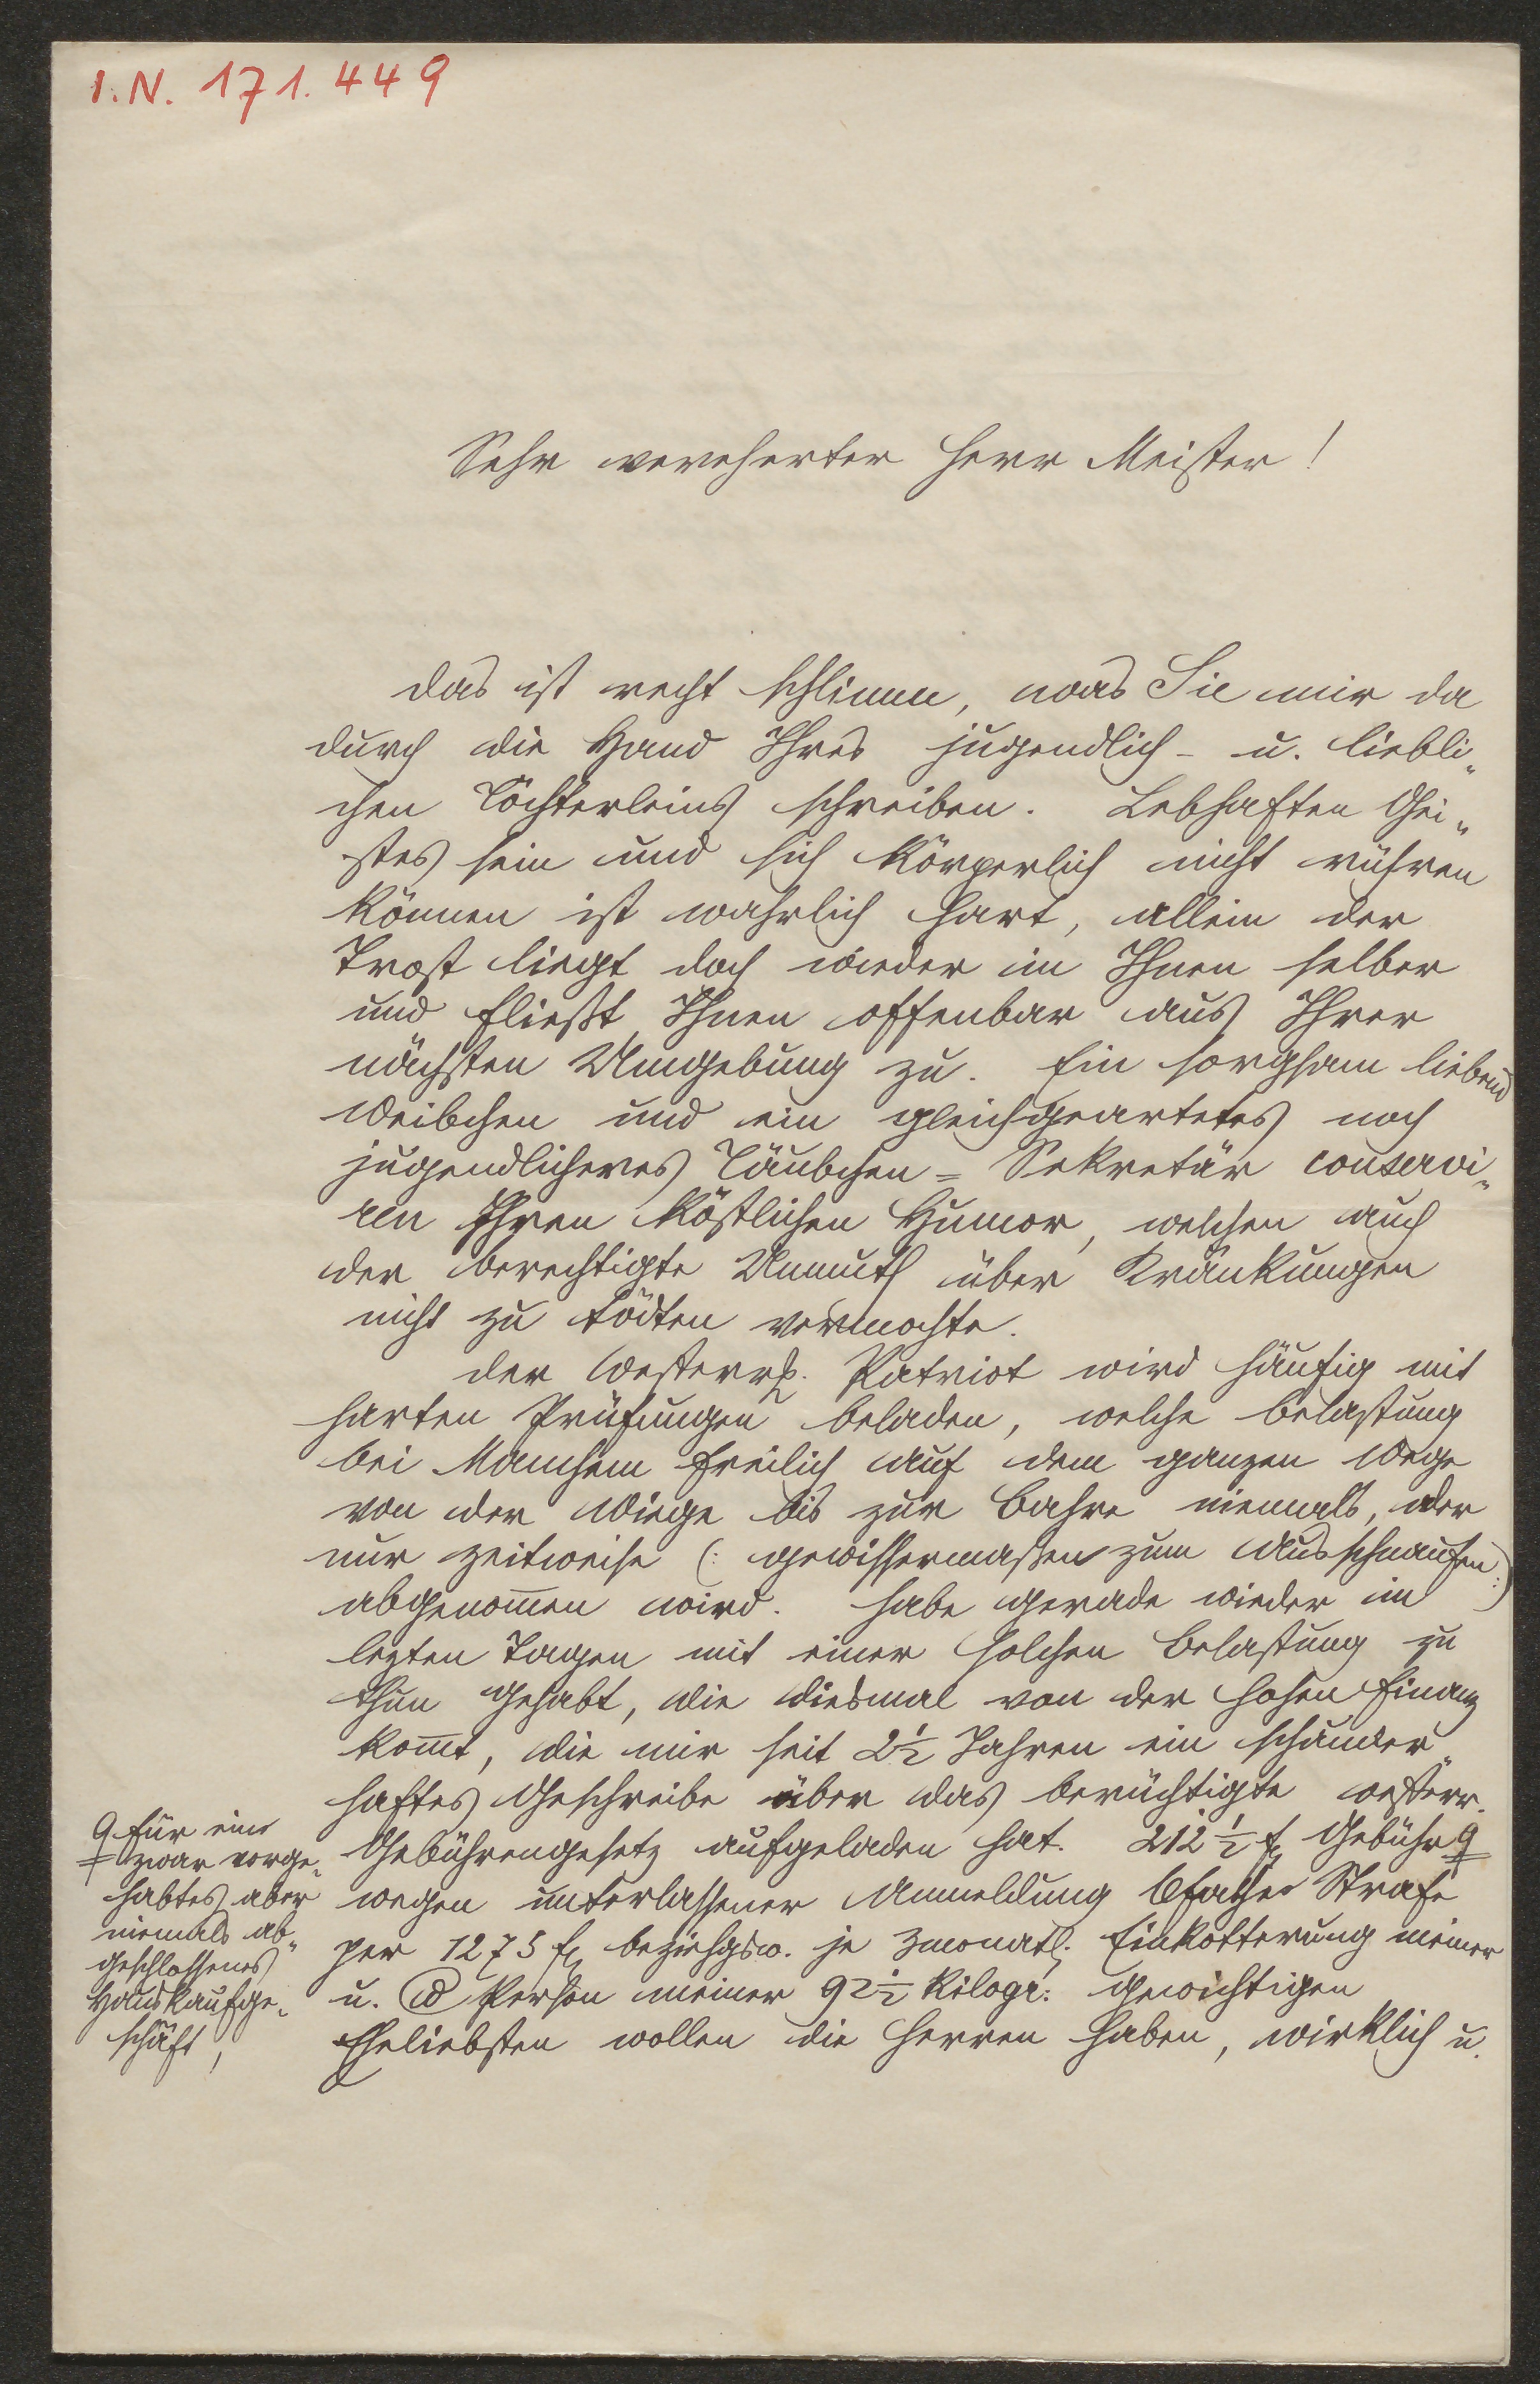 I.N. 171.449
Sehr verehrter Herr Meister!
Das ist recht schlimm, was Sie mir da
durch die Hand Ihres jugendlich- u. liebli„
chen Töchterleins schreiben. Lebhaften Gei„
stes sein und sich körperlich nicht rühren
können ist wahrlich hart, allein der
Trost liegt doch wieder in Ihnen selber
und fließt Ihnen offenbar aus Ihrer
nächsten Umgebung zu. Ein sorgsam liebend
Weibchen und ein gleichgeartetes noch
jugendlicheres Täubchen = Sekretär conservi„
ren Ihren köstlichen Humor, welchen auch
der berechtigte Unmuth über Kränkungen
nicht zu tödten vermochte.
Der Oesterr. Patriot wird häufig mit
harten Prüfungen beladen, welche Belastung
bei Manchem freilich auf dem ganzen Wege
von der Wiege bis zur Bahre niemals, oder
nur zeitweise (: gewissermaßen zum Ausschnaufen :)
abgenom̄en wird. Habe gerade wieder in
lezten Tagen mit einer solchen Belastung zu
thun gehabt, die diesmal von der hohen Finanz
kom̄t, die mir seit 2½ Jahren ein schauder„
haftes Geschreibe über das berüchtigte oesterr.
Gebührengesetz aufgeladen hat. 212½ f Gebühr
für ein
zwar vorge„
habtes aber
niemals ab„
geschlossenes
Hauskaufge„
schäft,
wegen unterlassener Anmeldung 6facher Strafe
per 1275 f beziehgsw. je 3monatl. Einkotterung meiner
u. Person meiner 92½ Kilogr. gewichtigen
Eheliebsten wollen die Herren haben, wirklich u.